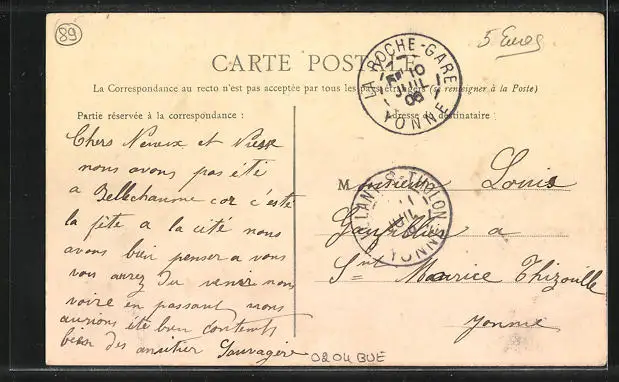 89
5 Euros
CARTE POSTALE
La Correspondance au recto n'est pas acceptée par tous les pays étrangers (se renseigner à la Poste)
Partie réservée à la correspondance :
Adresse du destinataire :
LA ROCHE-GARE
10
JUIL
06
YONNE
Chers Neveux et
nous avons pas été
a Bellechaume car c'est
la fête a la cité nous
avons bien penser a vous
vous aurez du venir nous
voire en passant nous
aurions été bien contents
bien des amitier Sauvagère
Monsieur Louis
a
St Maurice Thizouille
Yonne
S-THOLON
0204 BUE